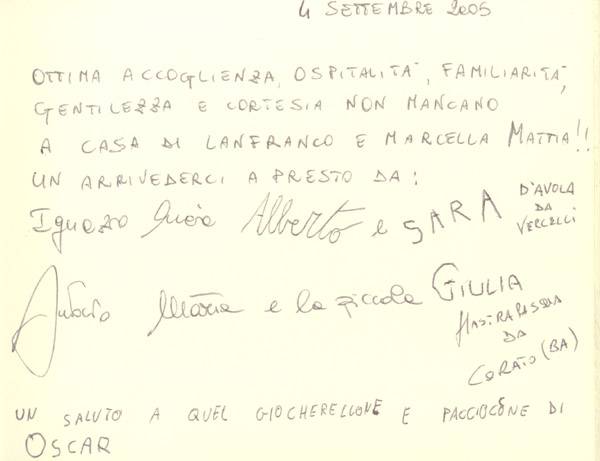 4 SETTEMBRE 2005
OTTIMA ACCOGLIENZA, OSPITALITA', FAMILIARITA',
GENTILEZZA E CORTESIA NON MANCANO
A CASA DI LANFRANCO E MARCELLA MATTIA!!
UN ARRIVEDERCI A PRESTO DA:
Ignazio Alberto e SARA D'AVOLA
DA
VERCELLI
Maria e la piccola GIULIA
MASTRAPASQUA
DA
CORATO (BA)
UN SALUTO A QUEL GIOCHERELLONE E PACCIOCONE DI
OSCAR